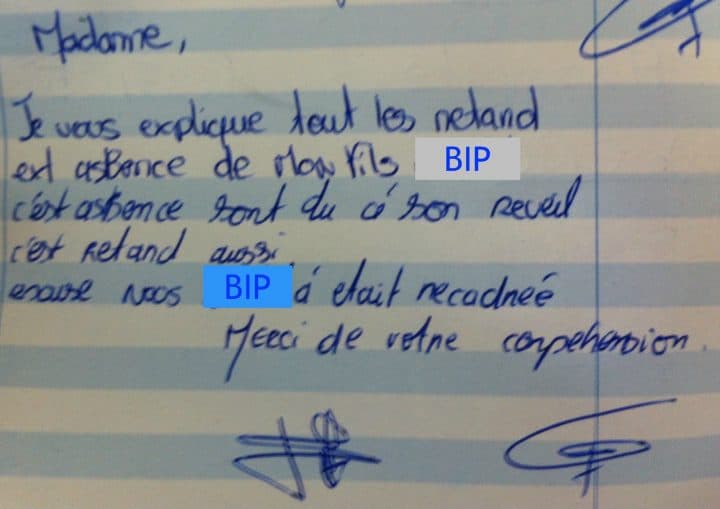 Madame,
Je vous explique tout les retard
ext asbence de mon fils BIP
c'est asbence sont du a son reveil
c'est retard aussi.
BIP à etait recadreé
Merci de votre conpehension.